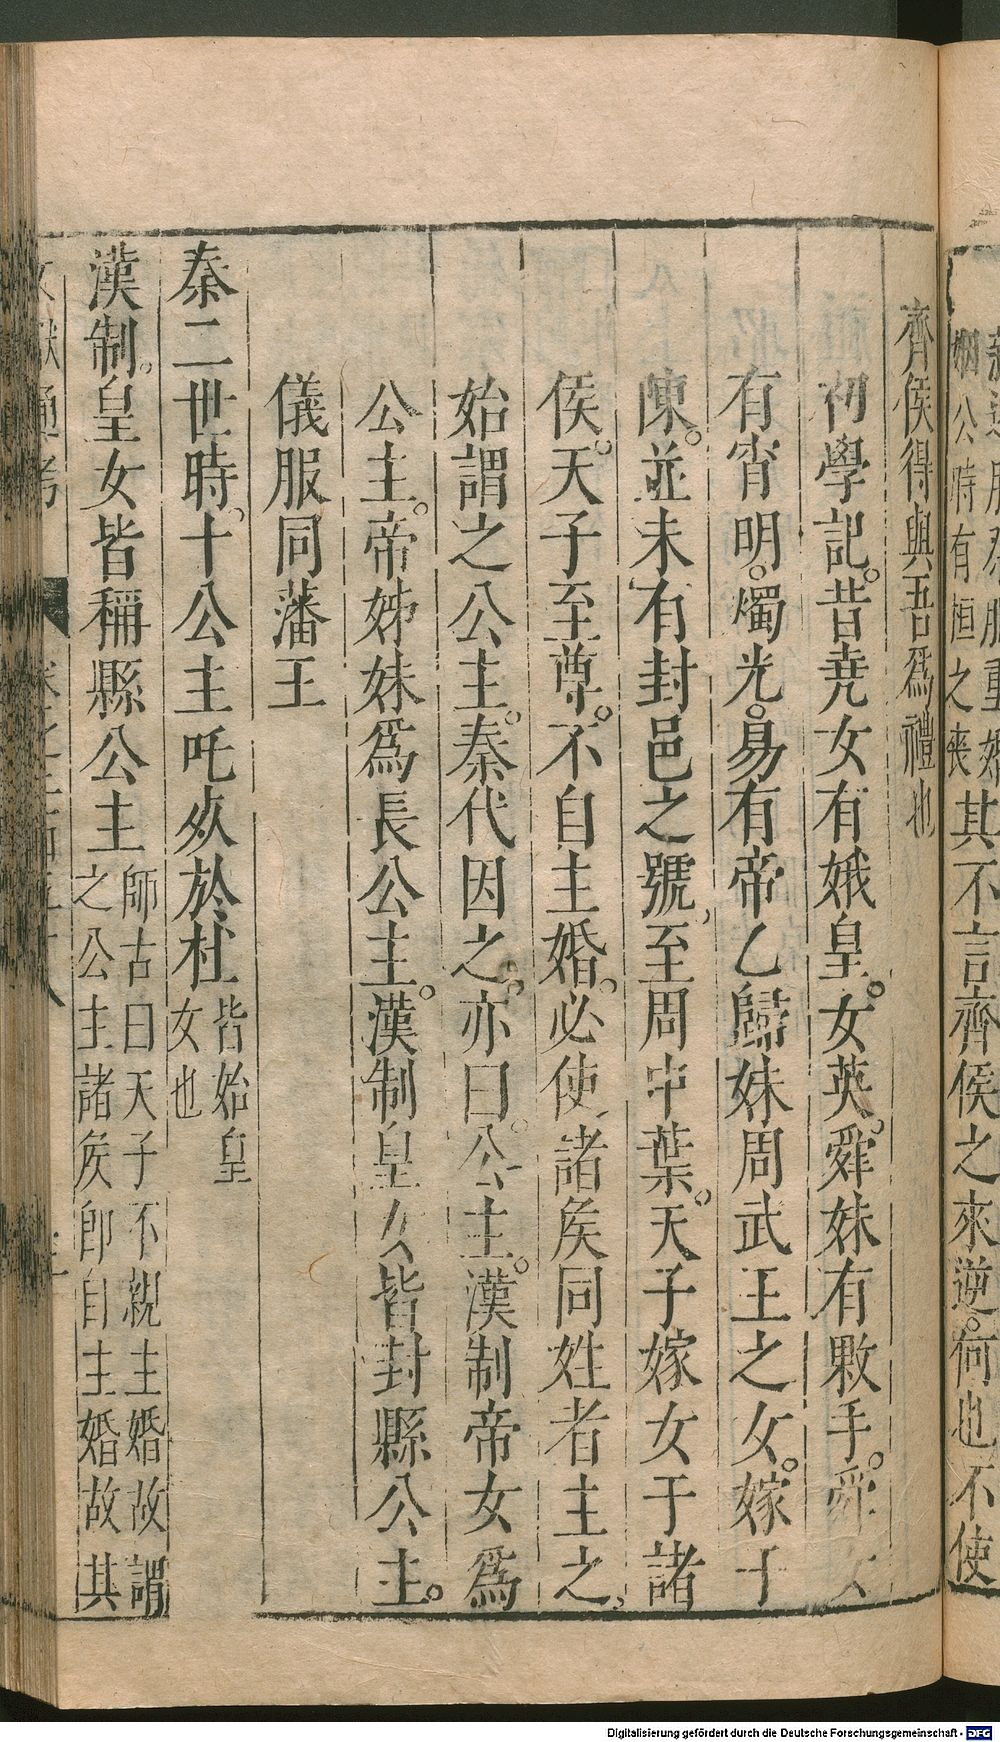 姻公時有桓之喪其不言齊侯之來逆何也不使
齊侯得與吾爲禮也
初學記昔堯女有娥皇女英舜妹有敤手舜女
有宵明燭光易有帝乙歸妹周武王之女嫁于
陳並未有封邑之號至周中葉天子嫁女于諸
侯天子至尊不自主婚必使諸侯同姓者主之
始謂之公主秦代因之亦曰公主漢制帝女爲
公主帝姊妹爲長公主漢制皇女皆封縣公主
儀服同藩王
秦二世時十公主吒死於杜
皆始皇
女也
漢制皇女皆稱縣公主
師古曰天子不親主婚故謂
之公主諸侯即自主婚故其
文獻通考
Digitalisierung gefördert durch die Deutsche Forschungsgemeinschaft - DFG